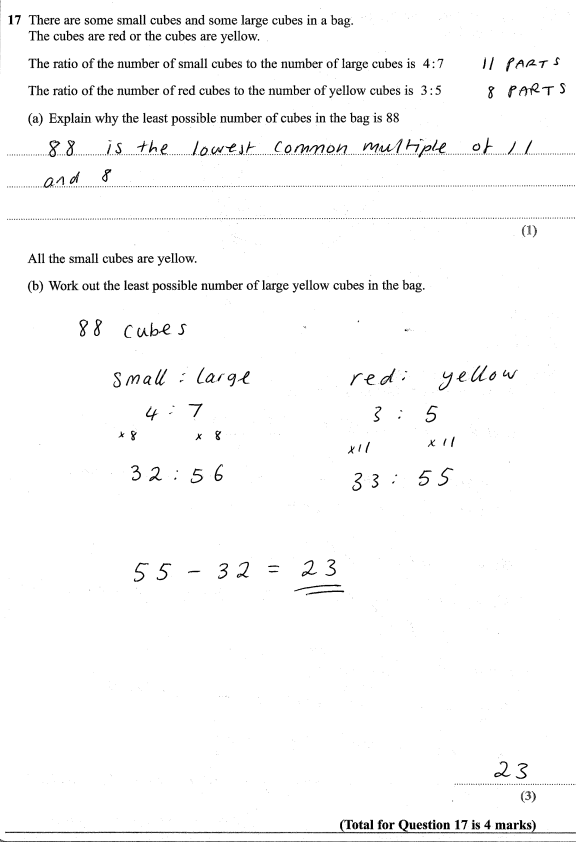 17 There are some small cubes and some large cubes in a bag.
The cubes are red or the cubes are yellow.
The ratio of the number of small cubes to the number of large cubes is 4:7 11 PARTS
The ratio of the number of red cubes to the number of yellow cubes is 3:5 8 PARTS
(a) Explain why the least possible number of cubes in the bag is 88
88 is the lowest common multiple of 11
and 8
(1)
All the small cubes are yellow.
(b) Work out the least possible number of large yellow cubes in the bag.
88 cubes
small : large red : yellow
4 : 7 3 : 5
x 8 x 8 x 11 x 11
32 : 56 33 : 55
55 - 32 = 23
23
(3)
(Total for Question 17 is 4 marks)